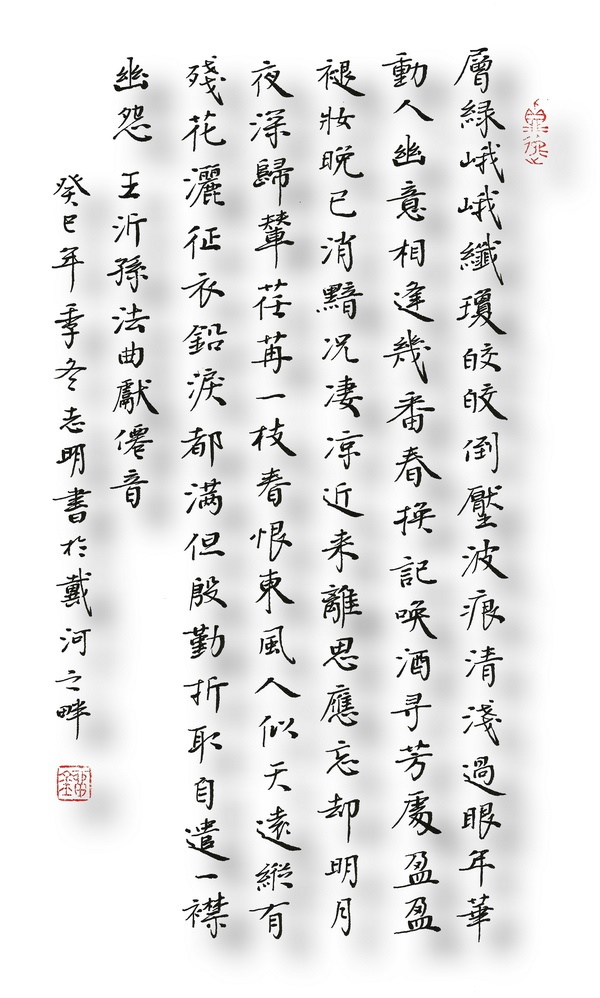 層緑峨峨纖瓊皎皎倒壓波痕清淺過眼年華
動人幽意相逢幾番春换記唤酒寻芳處盈盈
褪妝晚已消黯况凄凉近来離思應忘却明月
夜深歸輦荏苒一枝春恨東風人似天遠縱有
殘花灑征衣鉛淚都满但殷勤折取自遣一襟
幽怨 王沂孫法曲獻僊音
癸巳年季冬志明書於戴河之畔